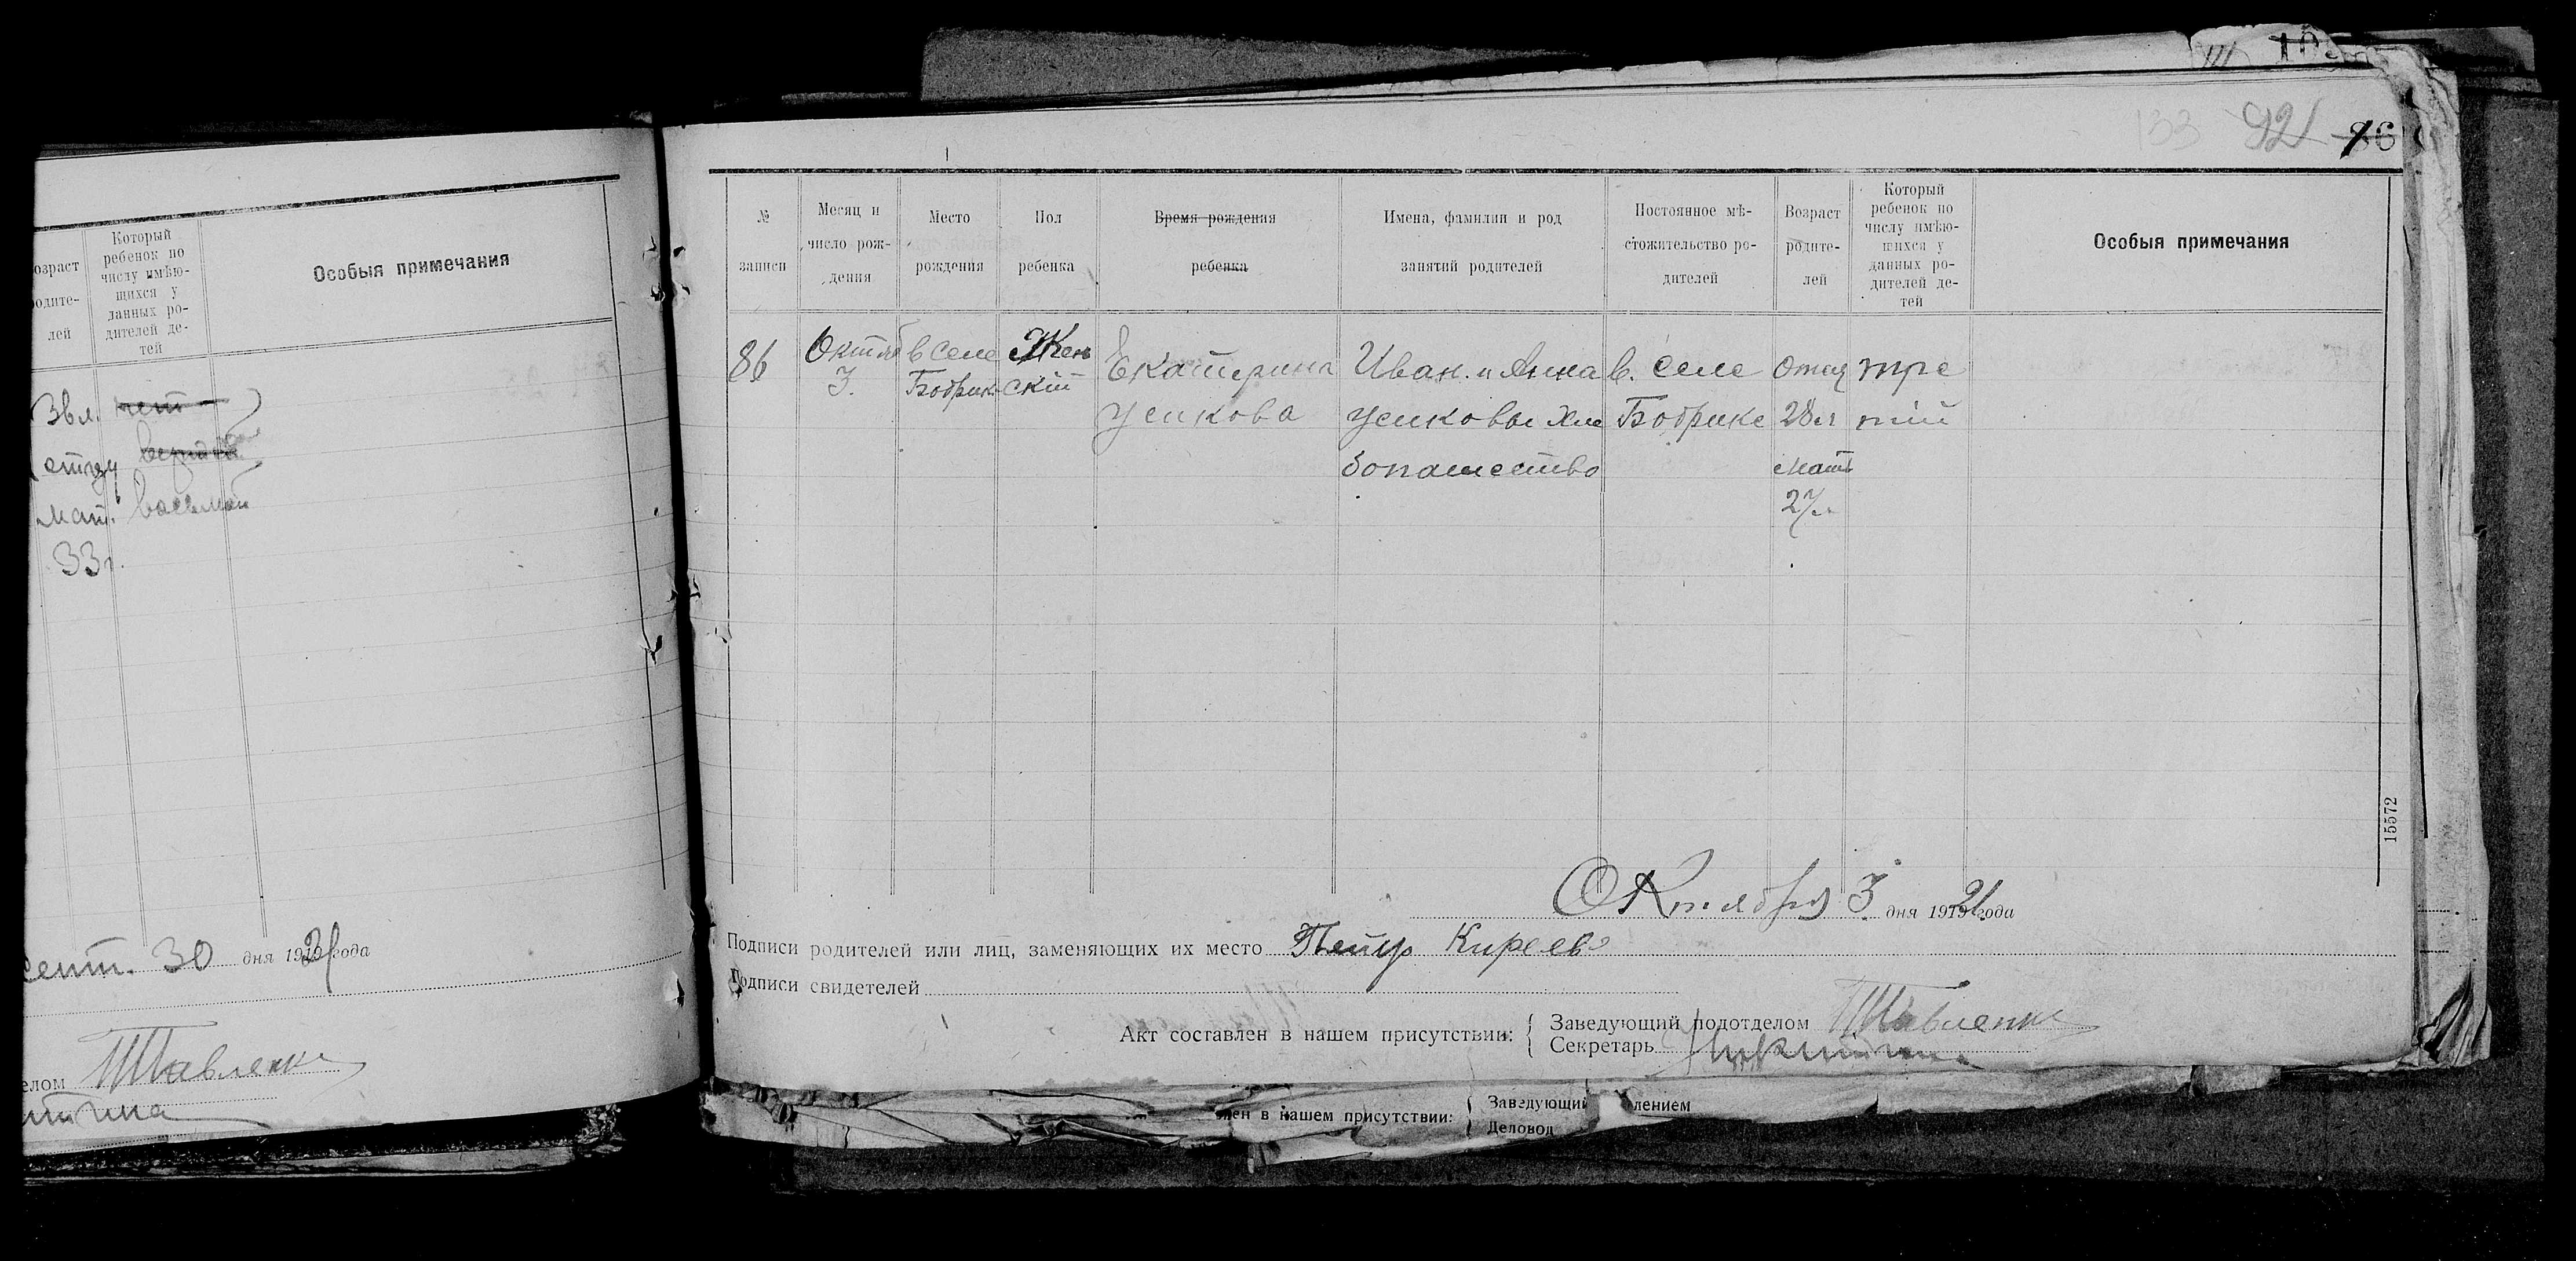 Который
озраст ребенок по
числу имѣю-
одите- щихся у
данных ро-
лей дителей де-
тей
Особыя примечания
отцу
мат. восьмой
33г.
сент. 30 дня 1921 года
елом Павленко
итина
133 92 86
№
записи
Месяц и
число рож-
дения
Место
рождения
Пол
ребенка
Время рождения
ребенка
Имена, фамилии и род
занятий родителей
Постоянное мѣ-
стожительство ро-
дителей
Возраст
родите-
лей
Который
ребенок по
числу имѣю-
щихся у
данных ро-
дителей де-
тей
Особыя примечания
86
Октяб
3.
в селе
Бобрик
Жен
скій
Екатерина
Усикова
Иван. и Анна
Усиковы хле
бопашество
в. селе
Бобрике
Отец
28 л
мать
27 л
тре
тій
15572
Октября 3 дня 1921 года
Подписи родителей или лиц, заменяющих их место Петр Киреев
Подписи свидетелей
Акт составлен в нашем присутствии:
Заведующий подотделом Павленко
Секретарь Никитина
ен в нашем присутствии:
Заведующий лением
Деловод